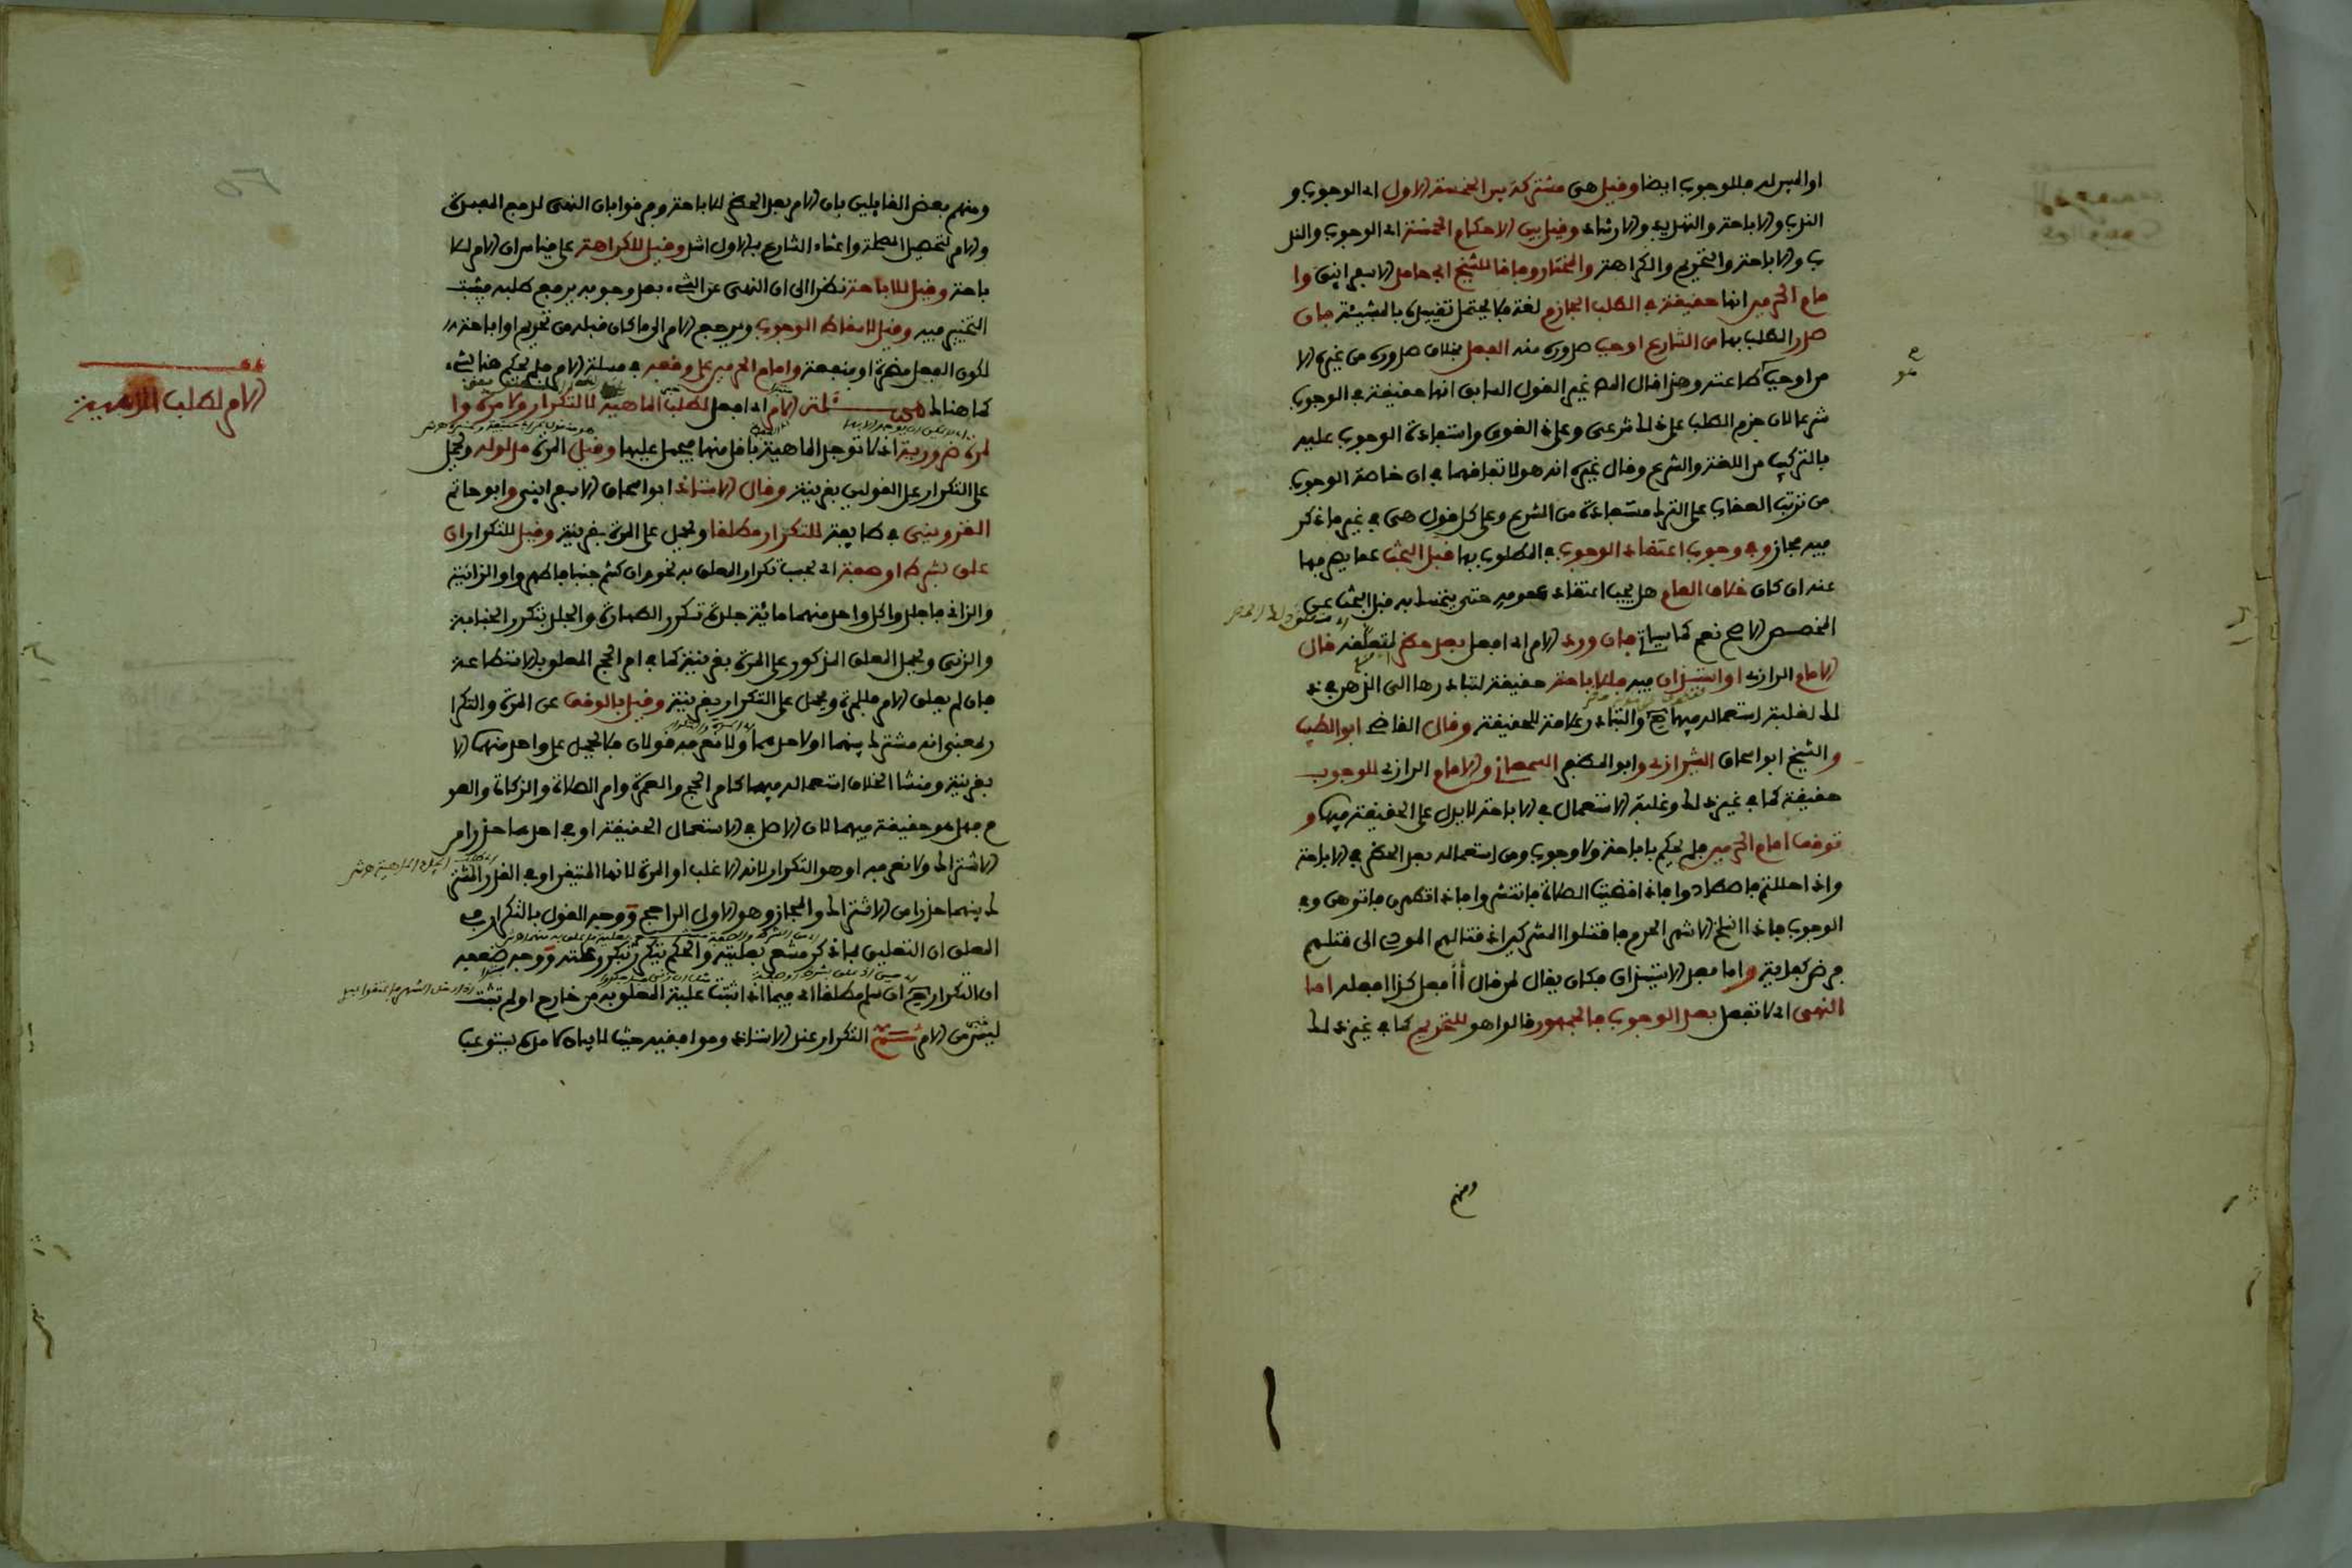 او المبين له فللوجوب ايضا وقيل هي مشتركة بين الخمسة الاول اي الوجوب و
الندب والاباحة والتهديد والارشاد وقيل بين الاحكام الخمسة اي الوجوب والند
ب والاباحة والتحريم والكراهة والمختار وفاقا للشيخ ابي حامد الاسفرايني وا
مام الحرمين انها حقيقة في الطلب الجازم لغة فلا يحتمل تقييده بالمشيئة فان
صدر الطلب بها من الشارع اوجب صدوره منه الفعل بخلاف صدوره من غيره الا
من اوجب طاعته وهذا قال المص غير القول السابق انها حقيقة في الوجوب
شرعا لان جزم الطلب على ذلك شرعي وعلى ذا لغوي واستفادة الوجوب عليه
بالتركيب من اللغة والشرع وقال غيره انه هو لاتفاقهما في ان خاصة الوجوب
من ترتب العقاب على الترك مستفادة من الشرع وعلى كل قول هي في غير ما ذكر
فيه مجاز وفي وجوب اعتقاد الوجوب في المطلوب بها قبل البحث عما يصرفها
عنه ان كان خلاف العام هل يجب اعتقاد عمومه حتى يتمسك به قبل البحث عن
المخصص الاصح نعم كما سياتي فان ورد الامر اي افعل بعد حظر لمتعلقه قال
الامام الرازي او استيذان فيه فللاباحة حقيقة لتبادرها الى الذهن في ذ
لك لغلبة استعماله فيها ح والتبادر علامة للحقيقة وقال القاضي ابو الطيب
والشيخ ابو اسحاق الشيرازي وابو المظفر السمعاني والامام الرازي للوجوب
حقيقة كما في غير ذلك وغلبة الاستعمال في الاباحة لا يدل على الحقيقة فيها و
توقف امام الحرمين فلم يحكم باباحة ولا وجوب ومن استعماله بعد الحظر في الاباحة
واذا حللتم فاصطادوا فاذا قضيت الصلاة فانتشروا فاذا تطهرن فاتوهن وفي
الوجوب فاذا انسلخ الاشهر الحرم فاقتلوا المشركين اذ قتالهم المودي الى قتلهم
فرض كفاية واما بعد الاستيذان فكان يقال لمن قال أأفعل كذا افعله اما
النهي اي لا تفعل بعد الوجوب فالجمهور قالوا هو للتحريم كما في غير ذلك
ومنهم
ومنهم بعض القايلين بان الامر بعد الحظر للاباحة وفرقوا بان النهي لدفع المفسدة
والامر لتحصيل المصلحة واعتناء الشارع بالاول اشد وقيل للكراهة على قياس ان الامر للا
باحة وقيل للاباحة نظرا الى ان النهي عن الشيء بعد وجوبه يرفع طلبه فيثبت
التخيير فيه وقيل لاسقاط الوجوب ويرجع الامر الى ما كان قبله من تحريم او اباحة
لكون الفعل مضرة او منفعة وامام الحرمين على وقفه في مسئلة الامر فلم يحكم هنا بشيء
كما هناك مسئلة الامر اي افعل لطلب الماهية لا لتكرار ولا مرة وا
لمرة ضرورية اذ لا توجد الماهية باقل منها فيحمل عليها وقيل المرة مدلوله ويحمل
على التكرار على القولين بقرينة وقال الاستاذ ابو اسحاق الاسفرايني وابو حاتم
القزويني في طايفة للتكرار مطلقا ويحمل على المرة بقرينة وقيل للتكرار ان
علق بشرط او صفة اي بحسب تكرار المعلق به نحو وان كنتم جنبا فاطهروا والزانية
والزاني فاجلدوا كل واحد منهما مائة جلدة تتكرر الطهارة والجلد بتكرر الجنابة
والزنى ويحمل المعلق المذكور على المرة بقرينة كما في امر الحج المعلق بالاستطاعة
فان لم يعلق الامر فللمرة ويحمل على التكرار بقرينة وقيل بالوقف عن المرة والتكرا
ر بمعنى انه مشترك بينهما او لاحدهما ولا نعرفه قولان فلا يحمل على واحد منهما الا
بقرينة ومنشا الخلاف استعماله فيهما كامر الحج والعمرة وامر الصلاة والزكاة والصو
م فهل هو حقيقة فيهما لان الاصل في الاستعمال الحقيقة او في احدهما حذرا من
الاشتراك ولا نعرفه او هو التكرار لانه الاغلب او المرة لانها المتيقن او في القدر المشتر
ك بينهما حذرا من الاشتراك والمجاز وهو الاول الراجح ووجه القول بالتكرار في
المعلق ان التعليق بما ذكر مشعر بعليته والحكم يتكرر بتكرر علته ووجه ضعفه
ان التكرار ح ان سلم مطلقا اي فيما اذا ثبتت علية المعلق به من خارج او لم تثبت
ليس من الامر ثم التكرار عند الاستاذ وموافقيه حيث لا بيان لامده يستوعب
الامر لطلب الماهية